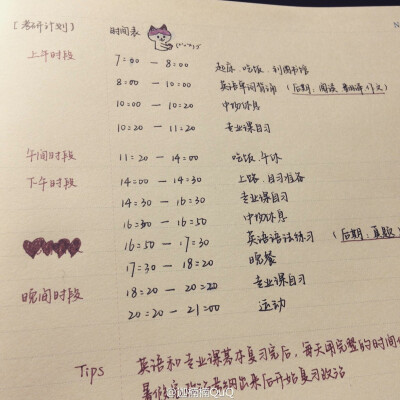 [考研计划] 时间表
上午时段 7:00 — 8:00 起床、吃饭、到图书馆
8:00 — 10:00 英语单词背诵 (后期:阅读
10:00 — 10:20 中场休息
10:20 — 11:20 专业课自习
午间时段 11:20 — 14:00 吃饭、午休
下午时段 14:00 — 14:30 上路、自习准备
14:30 — 16:30 专业课自习
16:30 — 16:50 中场休息
16:50 — 17:30 英语语法练习 (后期:真题)
17:30 — 18:20 晚餐
晚间时段 18:20 — 20:20 专业课自习
20:20 — 21:00 运动
Tips 英语和专业课基本复习完后,每天用完整的时间
出来后开始复习政治